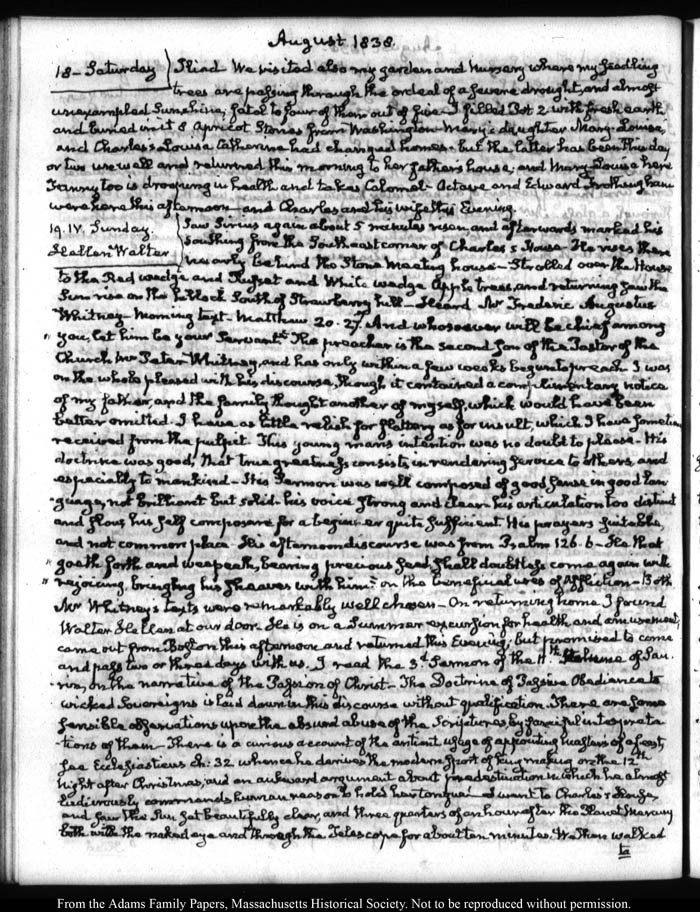 August 1838.
18 - Saturday Iliad - We visited also my garden and Nursery where my Seedling
trees are passing through the ordeal of a severe drought, and almost
unexampled Sunshine; fatal to four of them out of five - I filled Pot 2 with fresh earth
and buried in it 8 Apricot Stones from Washington - Mary's daughter Mary-Louisa,
and Charles's Louisa Catherine had changed homes - but the latter has been this day
or two unwell and returned this morning to her father's house; and Mary-Louisa here
Fanny too is drooping in health and takes Calomel - Octave and Edward Frothingham
were here this afternoon - and Charles and his wife this Evening.
19. IV. Sunday. Saw Sirius again about 5 minutes risen, and afterwards marked his
Hellen Walter Southing from the Southeast corner of Charles's House - He rises there
nearly behind the Stone Meeting house - Strolled over the House
to the Red wedge and Russet and White wedge Apple trees, and returning saw the
Sun rise on the hillock South of Strawberry hill - Heard Mr Frederic Augustus
Whitney - Morning text - Matthew 20. 27. And whosoever will be chief among
" you, let him be your Servant" The preacher is the second Son of the Pastor of the
Church Mr Peter Whitney, and has only within a few weeks begun to preach - I was
on the whole pleased with his discourse, though it contained a complimentary notice
of my father, and the family thought another of myself, which would have been
better omitted. I have as little relish for flattery as for insult, which I have sometimes
received from the pulpit This young man's intention was no doubt to please - His
doctrine was good, that true greatness consists in rendering service to others, and
especially to mankind - His Sermon was well composed of good sense in good lan
guage, not brilliant but solid - his voice strong and clear - his articulation too distinct
and slow, his self composure for a beginner quite sufficient His prayers suitable,
and not common place - His afternoon discourse was from Psalm 126. 6 - He that
" goeth forth and weepeth, bearing precious seed, shall doubtless come again with
" rejoicing, bringing his sheaves with him" on the beneficial uses of Affliction - Both
Mr Whitney's texts were remarkably well chosen - On returning home I found
Walter Hellen at our door. He is on a Summer excursion for health and amusement;
came out from Boston this afternoon and returned this Evening, but promised to come
and pass two or three days with us. I read the 3d Sermon of the 11th Volume of Sau
rin, on the narrative of the Passion of Christ - The Doctrine of Passive Obedience to
wicked Sovereigns is laid down in this discourse without qualification. There are some
sensible observations upon the absurd abuse of the Scriptures by fanciful interpreta
tions of them - There is a curious account of the antient usage of appointing masters of a feast,
see Ecclesiasticus ch: 32 whence he derives the modern sport of King making on the 12th
night after Christmas; and an awkward argument about predestination in which he almost
ludicrously commands human reason to hold her tongue - I went to Charles's House,
and saw the Sun set beautifully clear, and three quarters of an hour after the Planet Mercury
both with the naked eye and through the Telescope for about ten minutes. We then walked
to
From the Adams Family Papers, Massachusetts Historical Society. Not to be reproduced without permission.